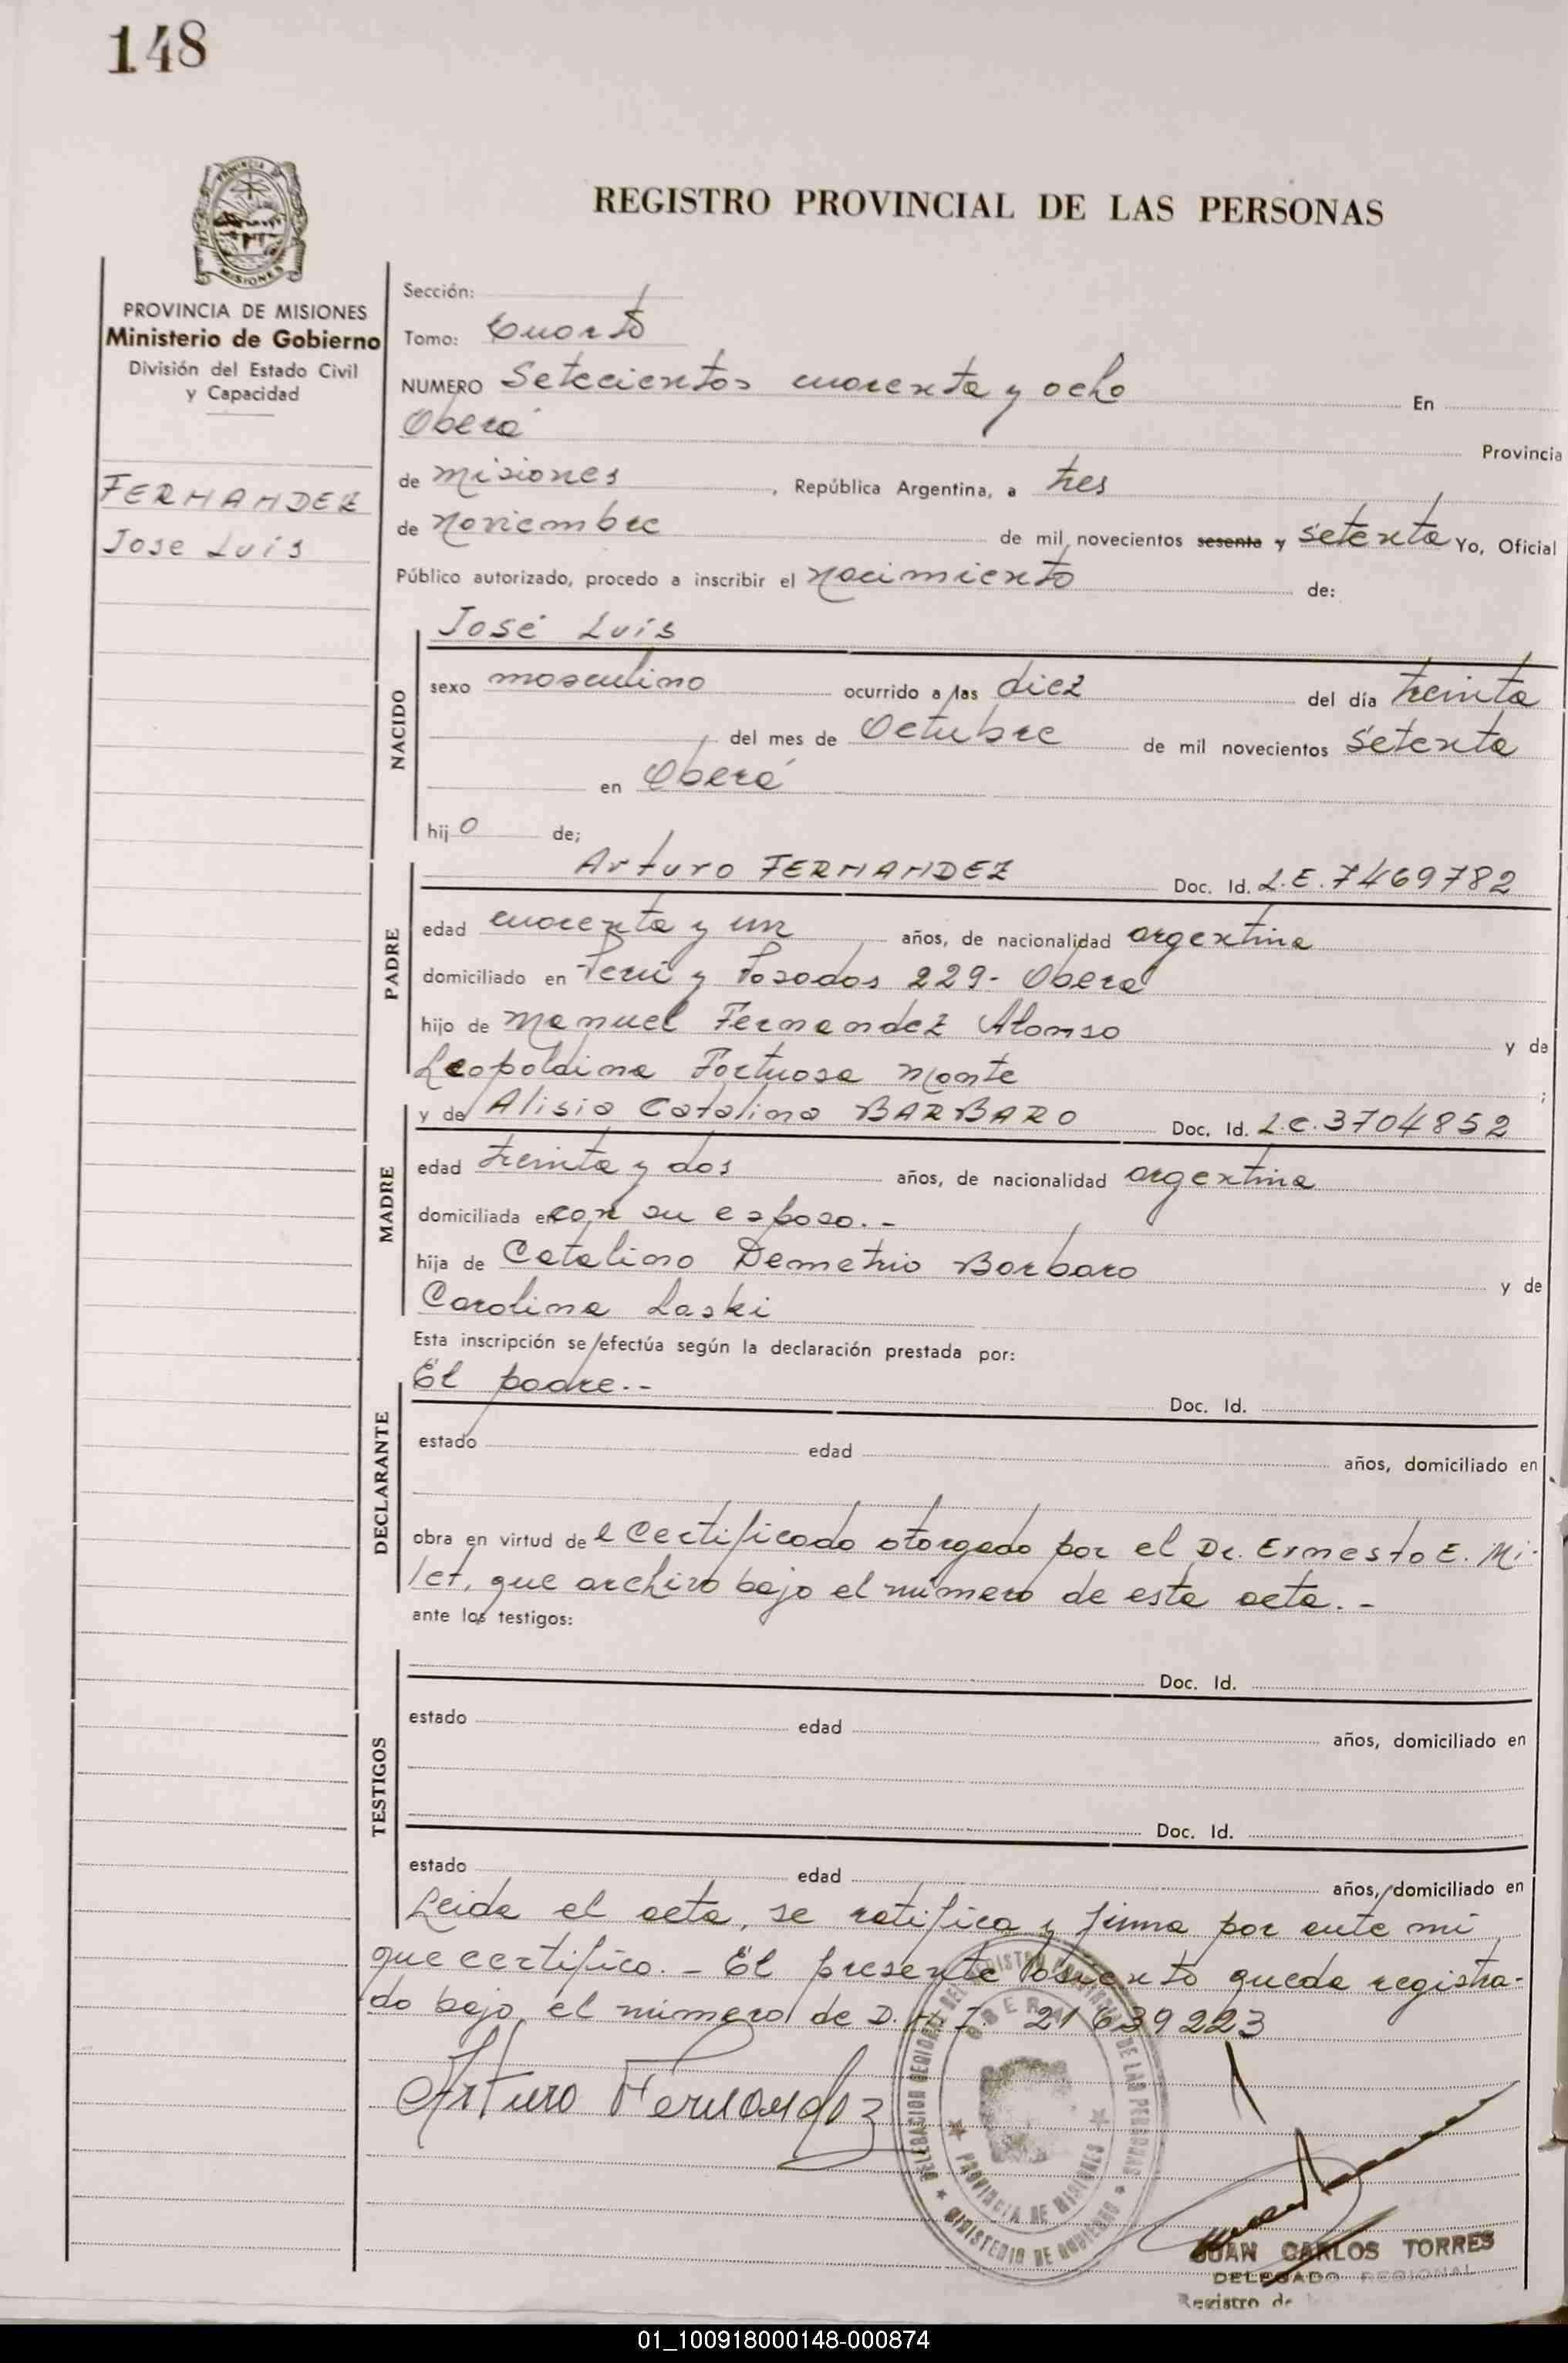 148
PROVINCIA DE MISIONES
Ministerio de Gobierno
División del Estado Civil
y Capacidad
FERNANDEZ
Jose Luis
REGISTRO PROVINCIAL DE LAS PERSONAS
Sección:
Tomo: Cuarto
NUMERO Setecientos cuarenta y ocho En
Oberá Provincia
de Misiones, República Argentina, a tres
de Noviembre de mil novecientos sesenta y setenta Yo, Oficial
Público autorizado, procedo a inscribir el Nacimiento de:
NACIDO
José Luis
sexo masculino ocurrido a las diez del día treinta
del mes de Octubre de mil novecientos setenta
en Oberá
hijo de;
PADRE
Arturo FERNANDEZ Doc. Id. L.E. 7469782
edad cuarenta y un años, de nacionalidad argentina
domiciliado en Perú y Posadas 229- Oberá
hijo de Manuel Fernandez Alonso y de
Leopoldina Fortuosa Monte ;
MADRE
y de Alisia Catalina BARBARO Doc. Id. L.C. 3704852
edad treinta y dos años, de nacionalidad argentina
domiciliada en con su esposo.-
hija de Catalino Demetrio Barbaro y de
Carolina Laski
Esta inscripción se efectúa según la declaración prestada por:
DECLARANTE
El padre.- Doc. Id.
estado edad años, domiciliado en
obra en virtud del Certificado otorgado por el Dr. Ernesto E. Mi-
let, que archivo bajo el número de esta acta.-
ante los testigos:
TESTIGOS
Doc. Id.
estado edad años, domiciliado en
Doc. Id.
estado edad años, domiciliado en
Leida el acta, se ratifica y firma por ante mi
que certifico.- El presente asiento queda registra-
do bajo el número de D.N.I. 21639223
Arturo Fernandez
DELEGACION REGIONAL DEL REGISTRO PROVINCIAL DE LAS PERSONAS
OBERA
PROVINCIA DE MISIONES
MINISTERIO DE GOBIERNO
JUAN CARLOS TORRES
DELEGADO REGIONAL
Registro de
01_100918000148-000874